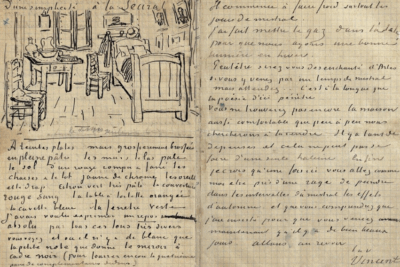 d'une simplicité à la Seurat
À teintes plates mais grossement brossées
en pleine pâte les murs lilas pâle
le sol d'un rouge rompu & fané les
chaises & le lit jaune de chrome les oreillers
et le drap citron vert très pâle la couverture
rouge sang la table à toilette orangée
la cuvette bleue la fenêtre verte
J'avais voulu exprimer un repos
absolu par tous ces tons très divers
vous voyez et où il n'y a de blanc que
la petite note que donne le miroir à
cadre noir (pour fourrer encore la quatrième
paire de complémentaires dedans)
commence à faire froid surtout les
jours de mistral
J'ai fait mettre le gaz dans
pour que nous ayons une bonne
lumière en hiver
Peut être serez vous désenchanté d'Arles
si vous y venez par un temps de mistral
mais attendez C'est à la longue que
la poésie d'ici pénètre
Vous trouverez pas encore la maison
aussi confortable que peu à peu nous
chercherons à la rendre Il y a tant de
dépenses et cela ne peut pas se
faire d'une seule haleine
qu'une fois ici vous allez comme
moi être pris d'une rage de peindre
dans les intervalles de mistral les effets
d'automne et que vous comprendrez que
maintenant qu'il y a de bien beaux
jours allons, au revoir
Vincent